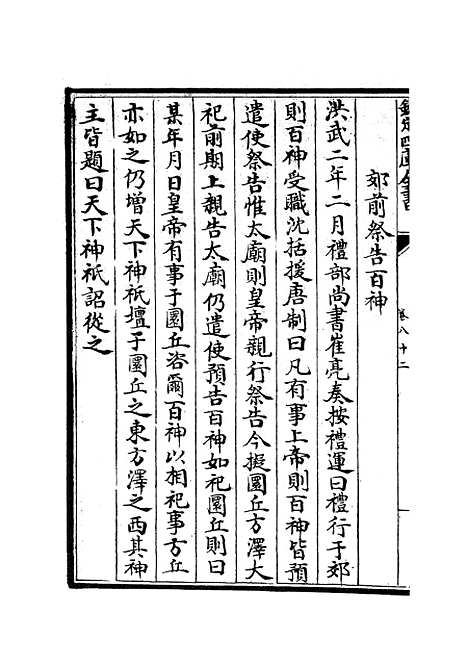 欽定四庫全書
卷八十二
郊前祭告百神
洪武二年二月禮部尚書崔亮奏按禮運曰禮行于郊
則百神受職沈括援唐制曰凡有事上帝則百神皆預
遣使祭告惟太廟則皇帝親行祭告今擬圜丘方澤大
祀前期上親告太廟仍遣使預告百神如祀圜丘則曰
某年月日皇帝有事于圜丘咨爾百神以相祀事方丘
亦如之仍增天下神祇壇于圜丘之東方澤之西其神
主皆題曰天下神祇詔從之